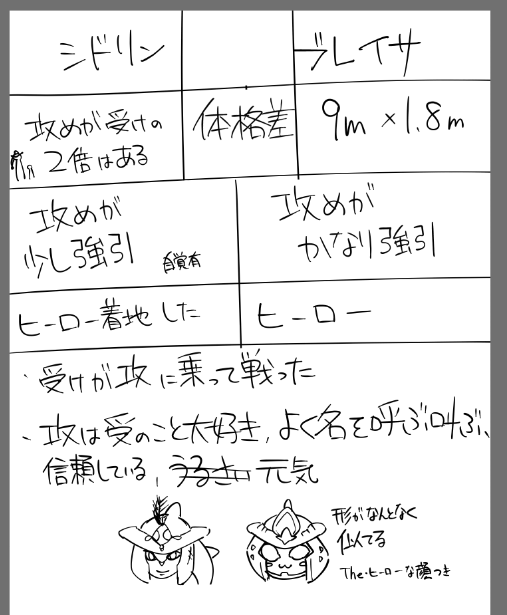 シドリン
ブレイサ
攻めが受けの
2倍はある
体格差
9m×1.8m
攻めが
少し強引 自覚有
攻めが
かなり強引
ヒーロー着地した
ヒーロー
・受けが攻に乗って戦った
・攻は受のこと大好き、よく名を呼ぶ叫ぶ、
信頼している、うるさい 元気
形がなんとなく
似てる
The・ヒーローな顔つき